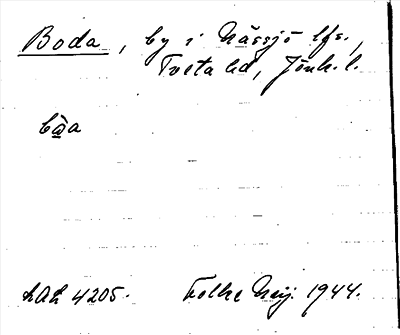 Boda, by i Nässjö lfs.,
Tveta hd, Jönk. l.
LAL 4205. Folke Heij. 1944.